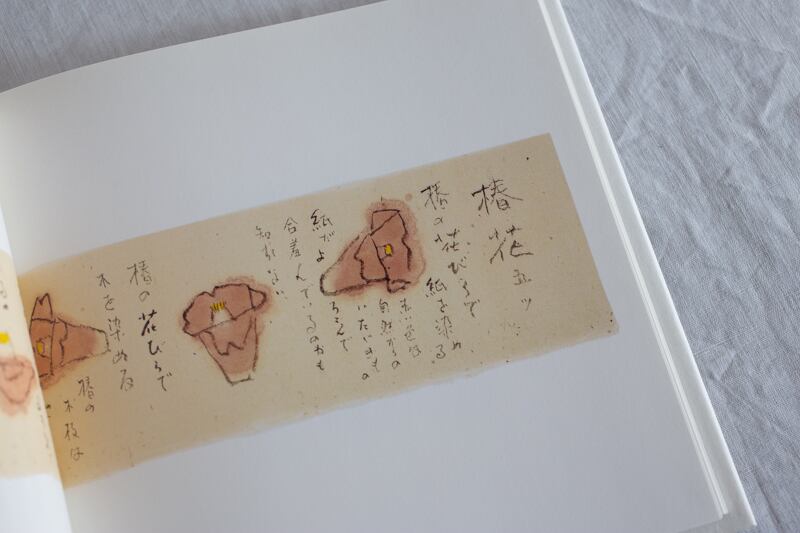 椿の花五ッ
椿の花びらで
紙を染める
赤い色は
自然からの
いたいもの
らしんで
紙だよ
含羞んでいるのかも
知れない
椿の花びらで
木を染める
椿の
木枝は